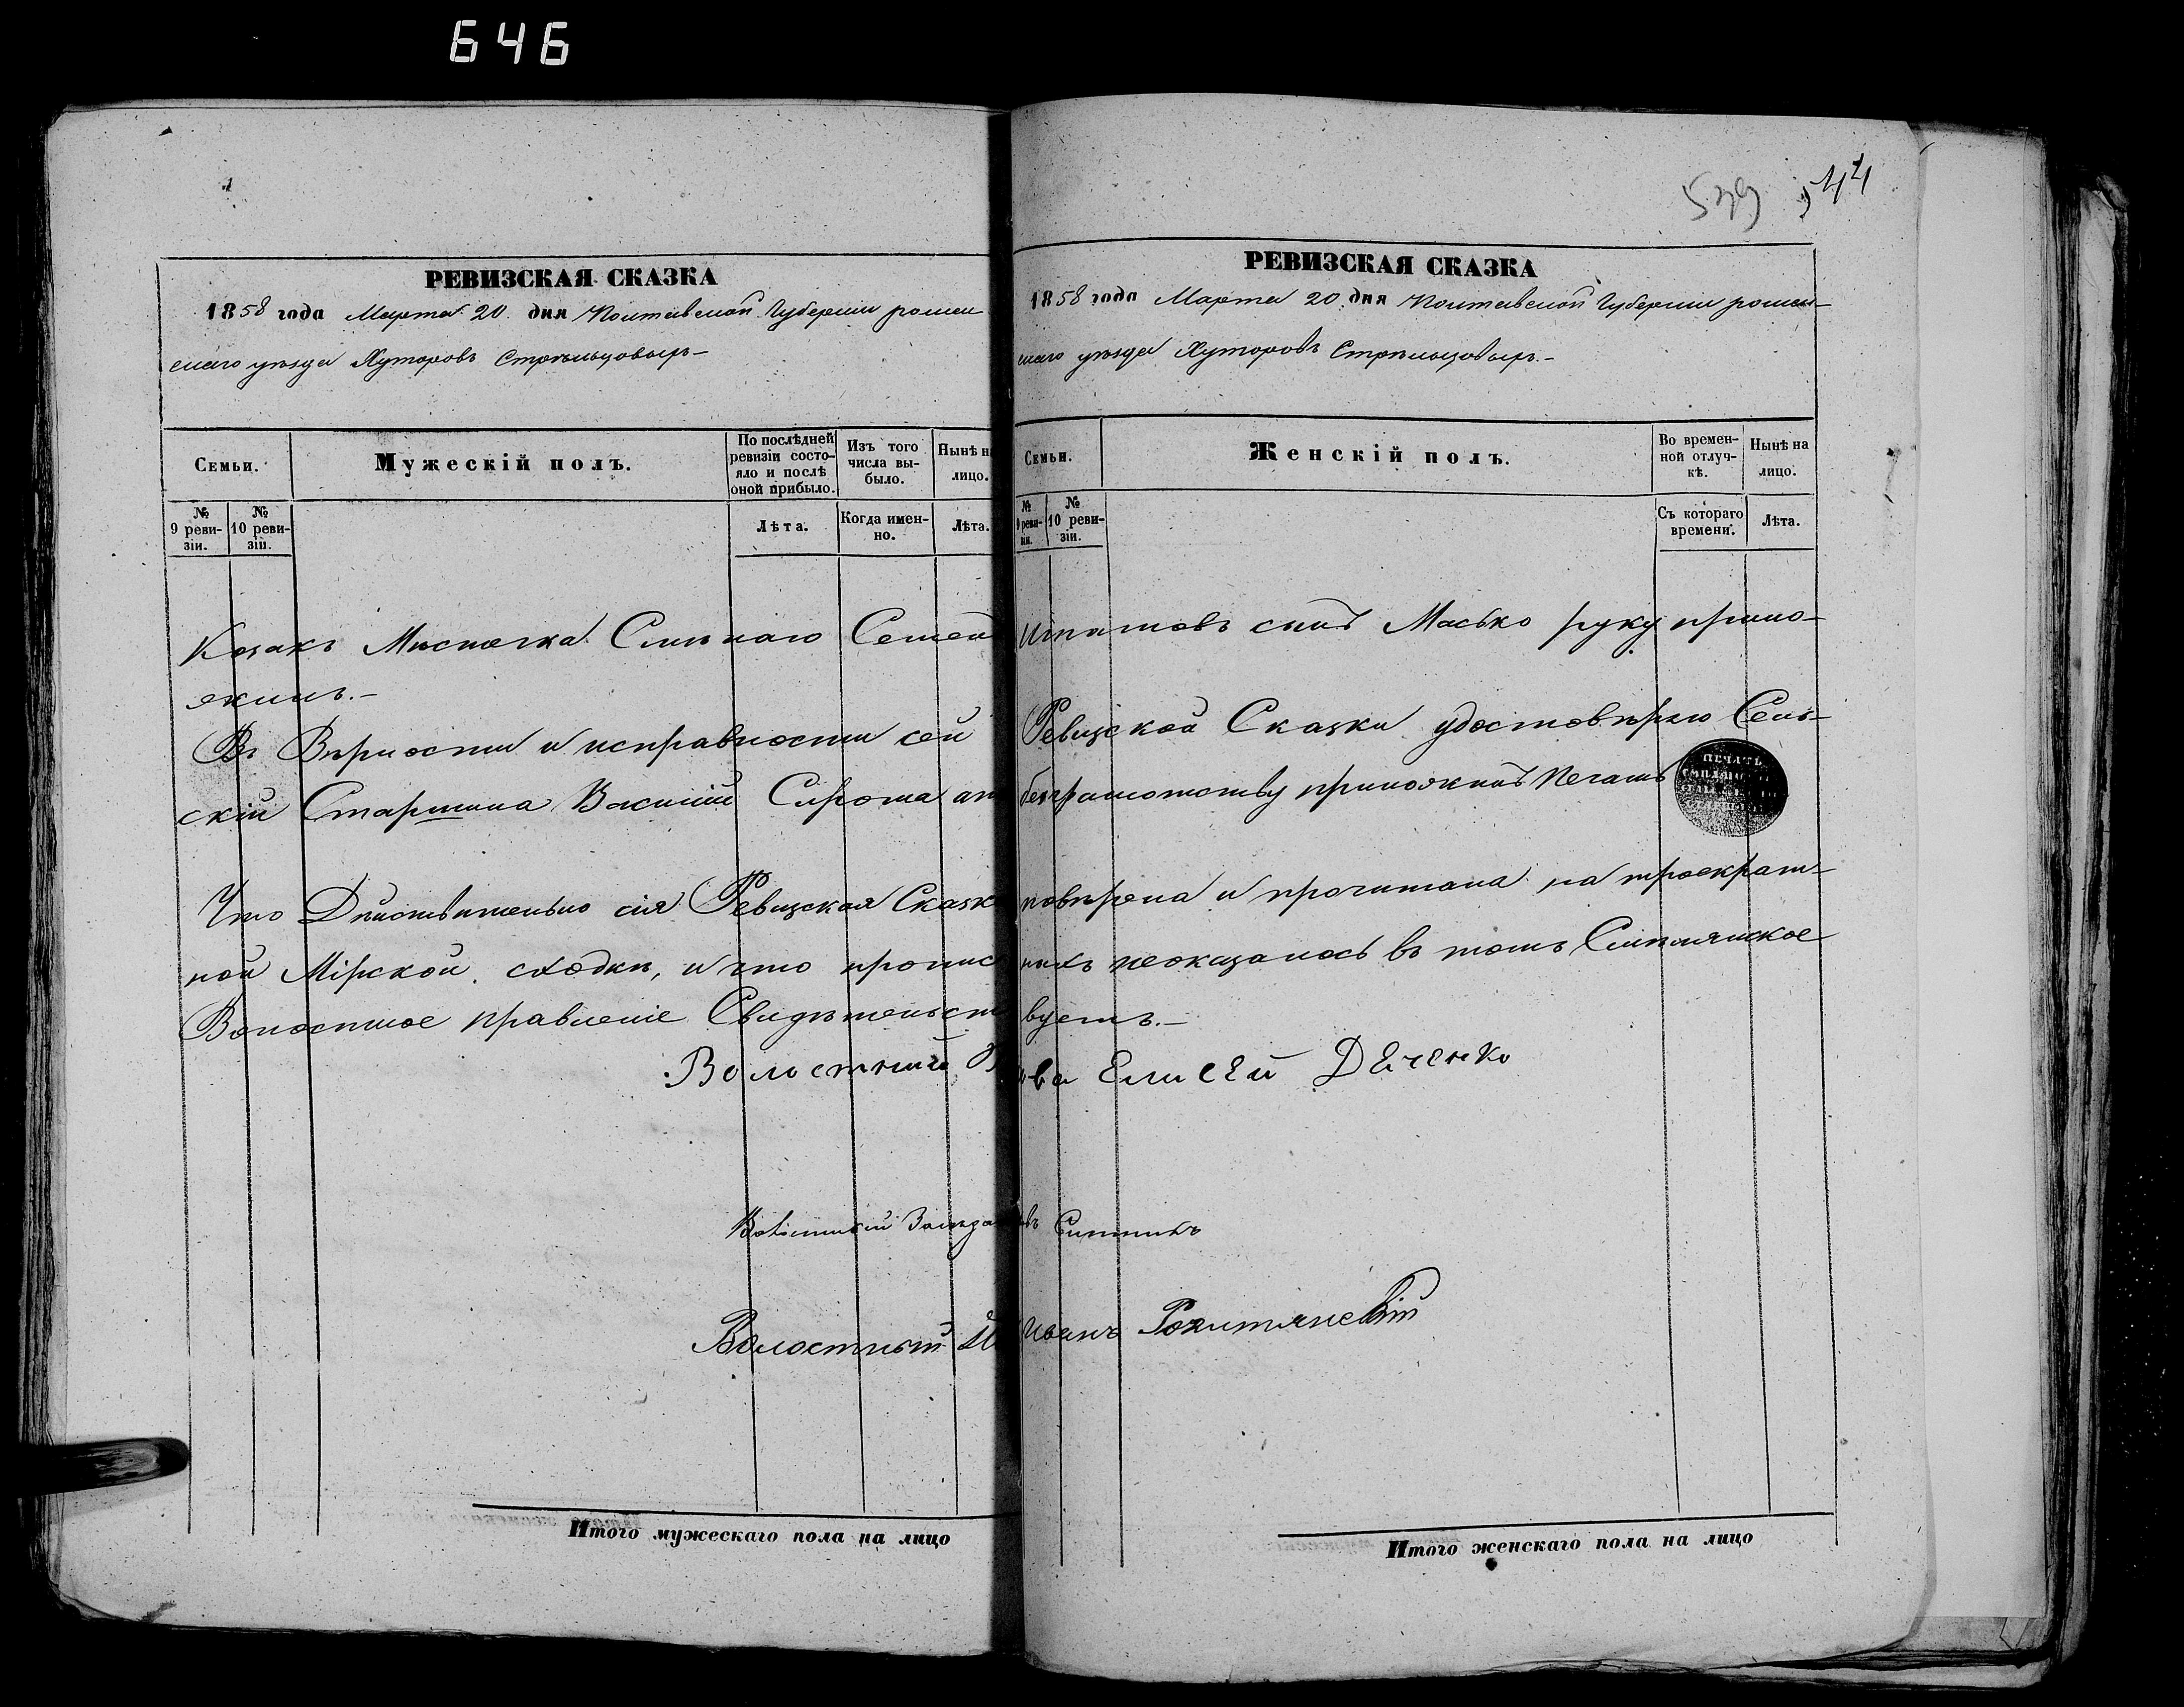 646
539 544
РЕВИЗСКАЯ СКАЗКА
1858 года Марта 20 дня Полтавской Губерніи ромен
скаго уѣзда Хуторовъ Стрѣльцовыхъ-
Семьи.
Мужескій полъ.
По послѣдней ревизіи состояло и послѣ оной прибыло.
Изъ того числа выбыло.
Нынѣ на лицо.
№ 9 ревизіи.
№ 10 ревизіи.
Лѣта.
Когда именно.
Лѣта.
РЕВИЗСКАЯ СКАЗКА
1858 года Марта 20 дня Полтавской Губерніи ромен-
скаго уѣзда Хуторовъ Стрѣльцовыхъ.-
Семьи.
Женскій полъ.
Во временной отлучкѣ.
Нынѣ на лицо.
№ 9 ревизіи.
№ 10 ревизіи.
Съ котораго времени.
Лѣта.
Козакъ Мѣстечка Смѣлаго Семен Игнатовъ сынъ Масько руку прило-
жилъ.-
Въ Вѣрности и исправности сей Ревизской Сказки удостовѣряю Сель-
скій Старшина Василій Сирота безграмотству приложилъ Печать
ПЕЧАТЬ
Что Дѣйствительно сія Ревизская Сказк повѣрена и прочитана на троекрат-
ной Мірской сходкѣ, и что пропис ныхъ неоказалось въ томъ Смѣлянское
Волостное правленіе Свидѣтельст вуетъ.-
Волостный Голова Елисей Дяченко
Волостный Засѣда
Волостный Иванъ
Итого мужескаго пола на лицо
Итого женскаго пола на лицо